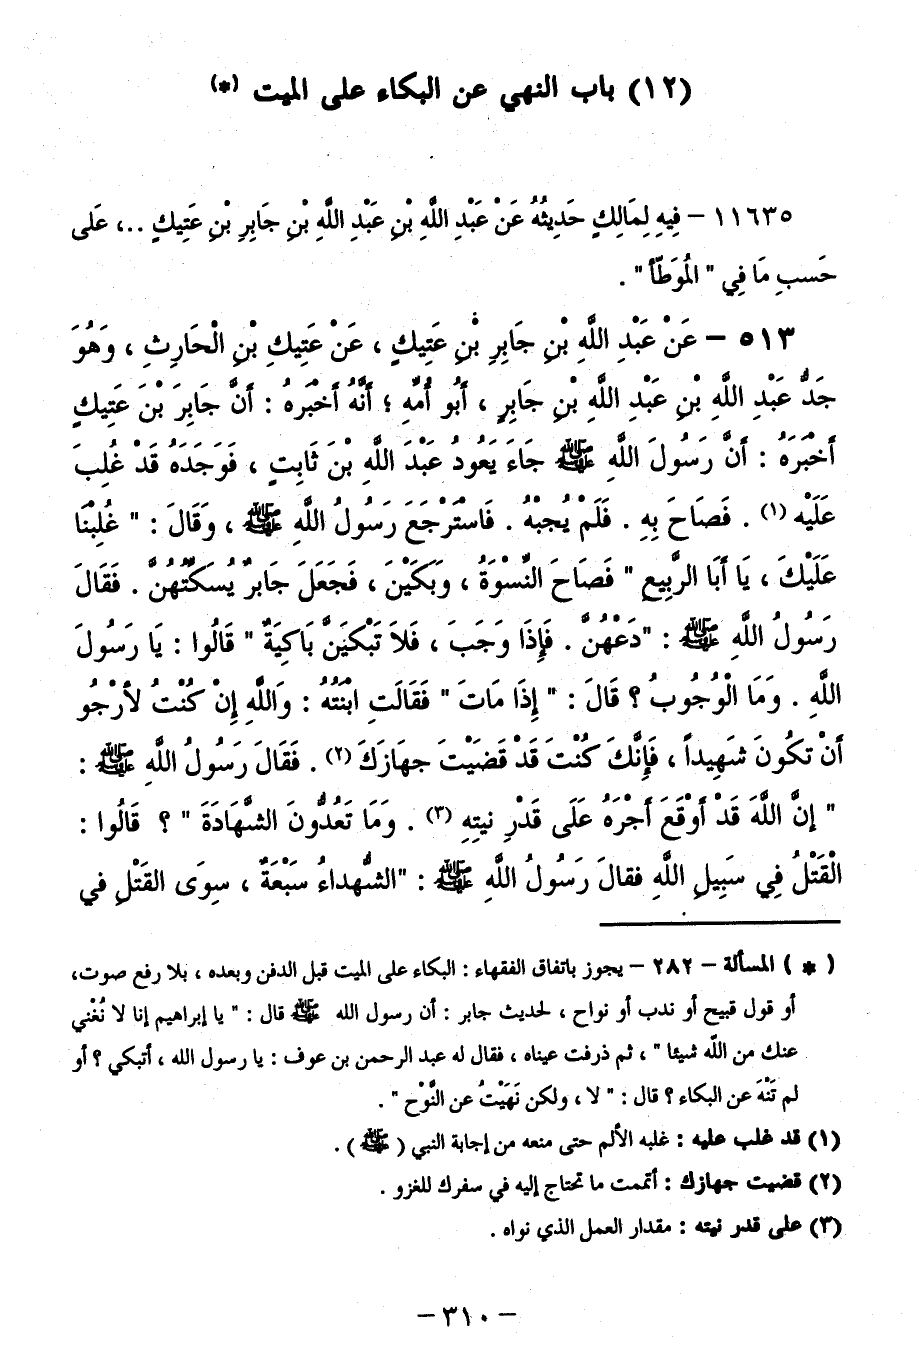 (١٢) باب النهي عن البكاء على الميت (*)
١١٦٣٥ – فِيهِ لِمَالِكٍ حَدِيثُهُ عَنْ عَبْدِ اللَّهِ بْنِ عَبْدِ اللَّهِ بْنِ جَابِرِ بْنِ عَتِيكٍ ..، عَلى
حَسبِ مَا فِي " الْمُوَطَّأ " .
٥١٣ – عَنْ عَبْدِ اللَّهِ بْنِ جَابِرِ بْنِ عَتِيكٍ ، عَنْ عَتِيكِ بْنِ الْحَارِثِ ، وَهُوَ
جَدُّ عَبْدِ اللَّهِ بْنِ عَبْدِ اللَّهِ بْنِ جَابِرٍ ، أَبُو أُمِّهِ ؛ أَنَّهُ أَخْبَرَهُ : أَنَّ جَابِرَ بْنَ عَتِيكٍ
أَخْبَرَهُ : أَنَّ رَسُولَ اللَّهِ ﷺ جَاءَ يَعُودُ عَبْدَ اللَّهِ بْنَ ثَابِتٍ ، فَوَجَدَهُ قَدْ غُلِبَ
عَلَيْه (١) . فَصَاحَ بِهِ . فَلَمْ يُجِبْهُ . فَاسْتَرْجَعَ رَسُولُ اللَّهِ ﷺ ، وَقَالَ : " غُلِبْنَا
عَلَيْكَ ، يَا أَبَا الرَّبِيعِ " فَصَاحَ النِّسْوَةُ ، وَبَكَيْنَ ، فَجَعَلَ جَابِرٌ يُسَكِّتُهُنَّ . فَقَالَ
رَسُولُ اللَّهِ ﷺ : "دَعْهُنَّ . فَإِذَا وَجَبَ ، فَلاَ تَبْكِيَنَّ بَاكِيَةٌ " قَالُوا : يَا رَسُولَ
اللَّهِ . وَمَا الْوُجُوبُ ؟ قَالَ : " إِذَا مَاتَ " فَقَالَتِ ابْنَتُهُ : وَاللَّهِ إِنْ كُنْتُ لأَرْجُو
أَنْ تَكُونَ شَهِيداً ، فَإِنَّكَ كُنْتَ قَدْ قَضَيْتَ جِهَازَكَ (٢) . فَقَالَ رَسُولُ اللَّهِ ﷺ :
" إِنَّ اللَّهَ قَدْ أَوْقَعَ أَجْرَهُ عَلَى قَدْرِ نِيتِهِ (٣) . وَمَا تَعُدُّونَ الشَّهَادَةَ " ؟ قَالُوا :
الْقَتْلُ فِي سَبِيلِ اللَّهِ فقالَ رَسُولُ اللَّهِ ﷺ : "الشُّهداءُ سَبْعَةٌ ، سِوَى القَتْلِ في
( * ) المسألة – ٢٨٢ – يجوز باتفاق الفقهاء : البكاء على الميت قبل الدفن وبعده ، بلا رفع صوت،
أو قول قبيح أو ندب أو نواح ، لحديث جابر : أن رسول الله ﷺ قال : " يا إبراهيم إنا لا نُغْني
عنك من اللَّه شيئا " ، ثم ذرفت عيناه ، فقال له عبد الرحمن بن عوف : يا رسول الله ، أتبكي ؟ أو
لم تَنْهَ عن البكاء ؟ قال : " لا ، ولكن نَهَيْتُ عن النَّوْح " .
(١) قد غلب عليه : غلبه الألم حتى منعه من إجابة النبي ( ﷺ ) .
(٢) قضيت جهازك : أتممت ما تحتاج إليه في سفرك للغزو .
(٣) على قدر نيته : مقدار العمل الذي نواه .
– ٣١٠ –